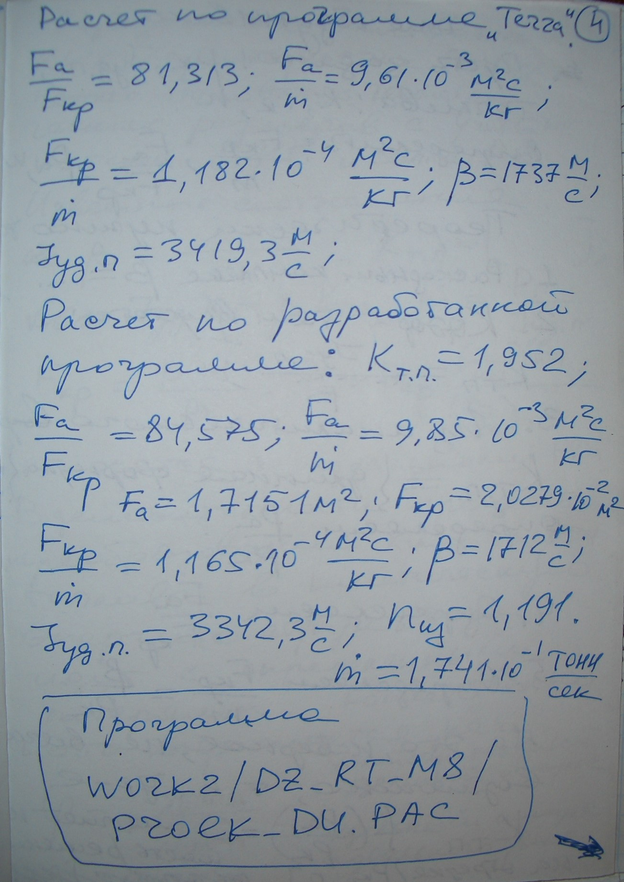 Расчет по программе „Terra“. 4
Fa/Fкр = 81,313; Fa/ṁ = 9,61·10⁻³ м²с/кг;
Fкр/ṁ = 1,182·10⁻⁴ м²с/кг; β=1737 м/с;
Jуд.п = 3419,3 м/с;
Расчет по разработанной
программе: Kт.п. = 1,952;
Fa/Fкр = 84,575; Fa/ṁ = 9,85·10⁻³ м²с/кг
Fa = 1,7151 м²; Fкр = 2,0279·10⁻² м²
Fкр/ṁ = 1,165·10⁻⁴ м²с/кг; β=1712 м/с;
Jуд.п. = 3342,3 м/с; nиз = 1,191.
ṁ = 1,741·10⁻¹ тонн/сек
Программа
WORK2/DZ_RT_M8/
PROEK_DU.PAC